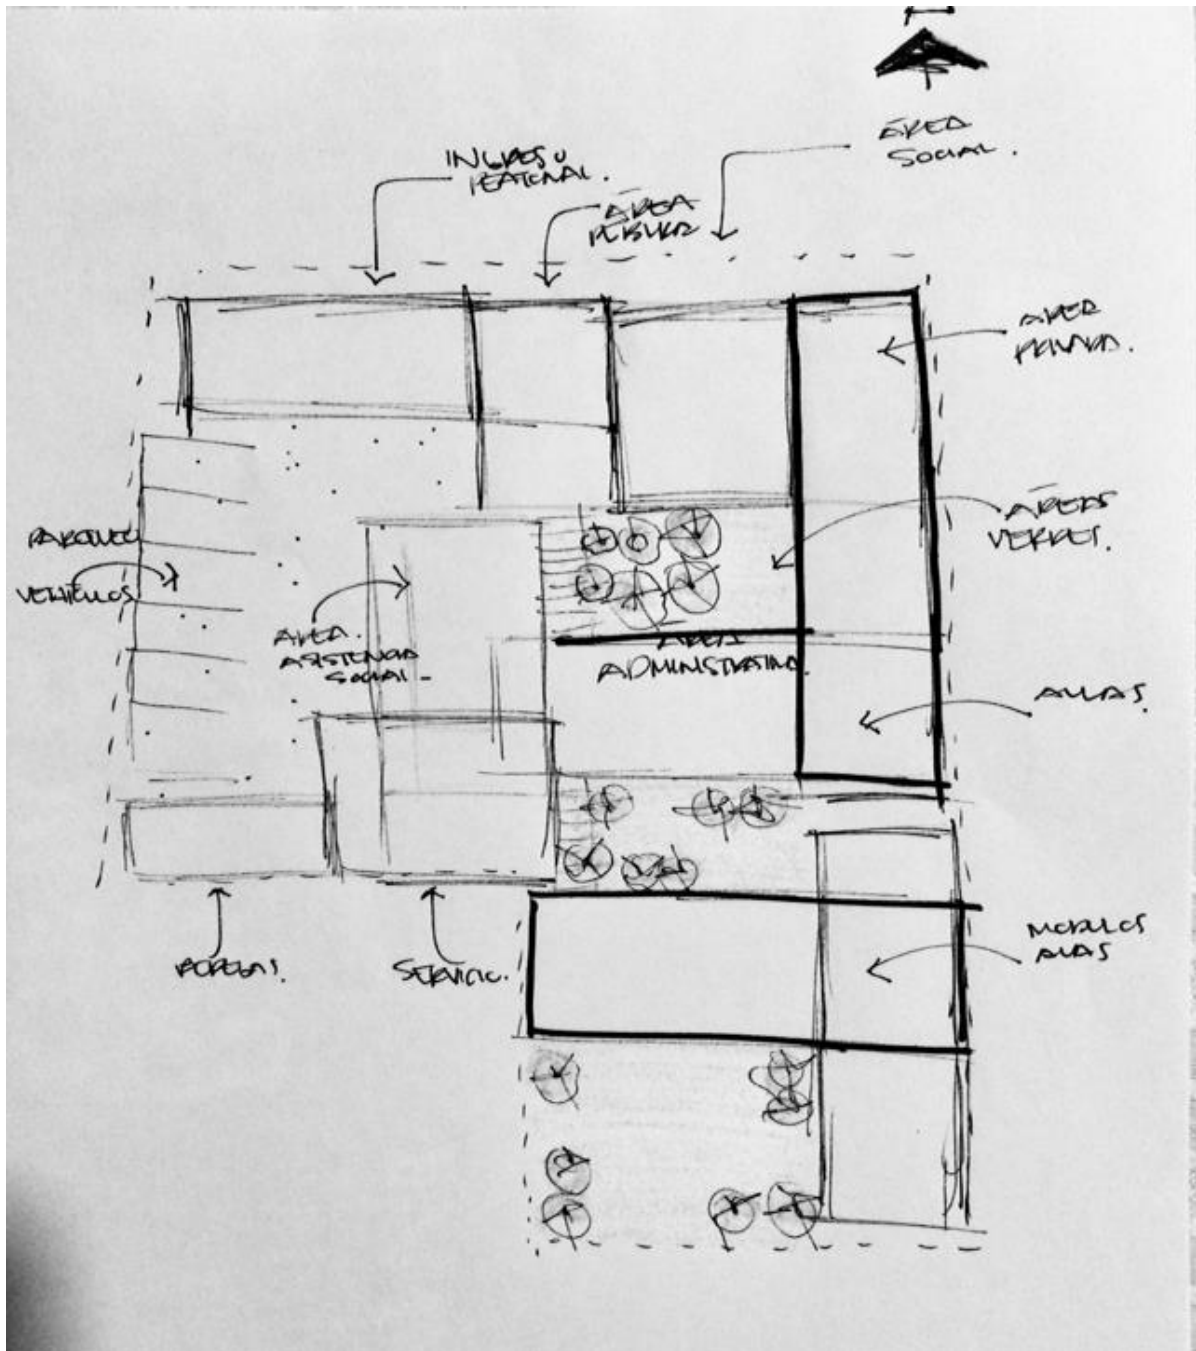 ÁREA
SOCIAL.
INGRESO
PEATONAL.
ÁREA
PUBLICA
AREA
PRIVADA.
ÁREAS
VERDES.
PARQUEO
VEHICULOS
AREA
ASISTENCIA
SOCIAL-
AREA
ADMINISTRATIVA.
AULAS.
MODULOS
AULAS
BODEGAS.
SERVICIO.